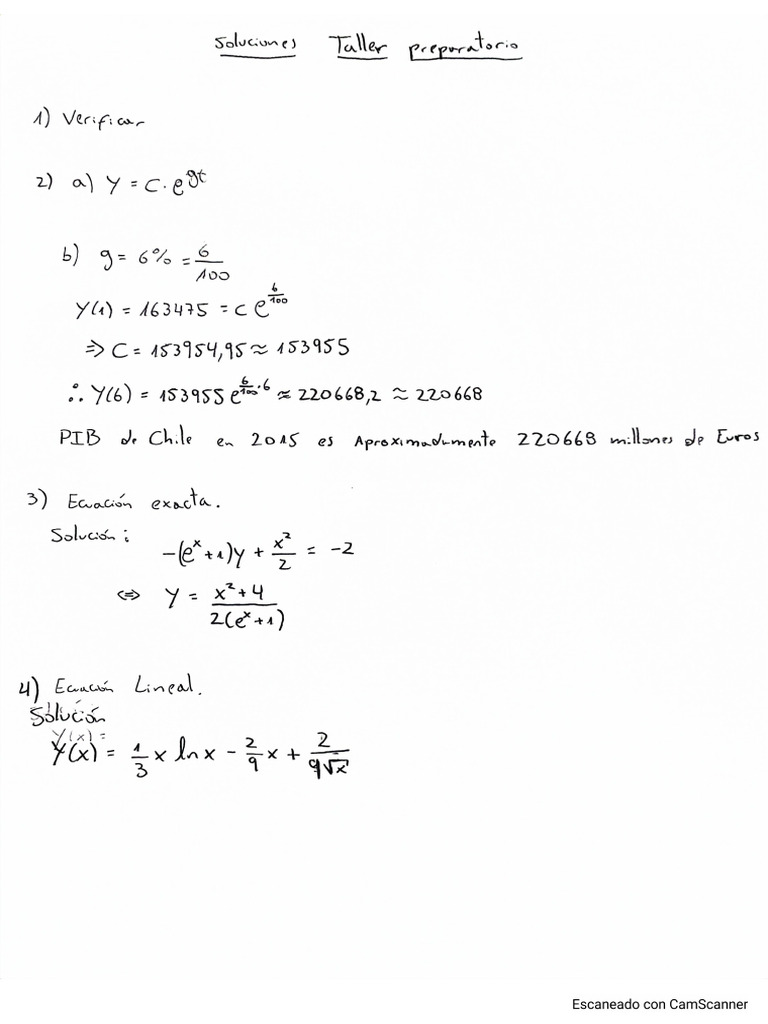 Soluciones Taller preparatorio
1) Verificar
2) a) Y = C·e^{gt}
b) g = 6% = 6/100
Y(1) = 163475 = C e^{6/100}
⇒ C = 153954,95 ≈ 153955
∴ Y(6) = 153955 e^{6/100·6} ≈ 220668,2 ≈ 220668
PIB de Chile en 2015 es Aproximadamente 220668 millones de Euros
3) Ecuación exacta.
Solución:
-(e^x+1)y + x²/2 = -2
⇔ Y = (x²+4)/(2(e^x+1))
4) Ecuación Lineal.
Solución
Y(x) =
Y(x) = 1/3 x ln x - 2/9 x + 2/(9√x)
Escaneado con CamScanner